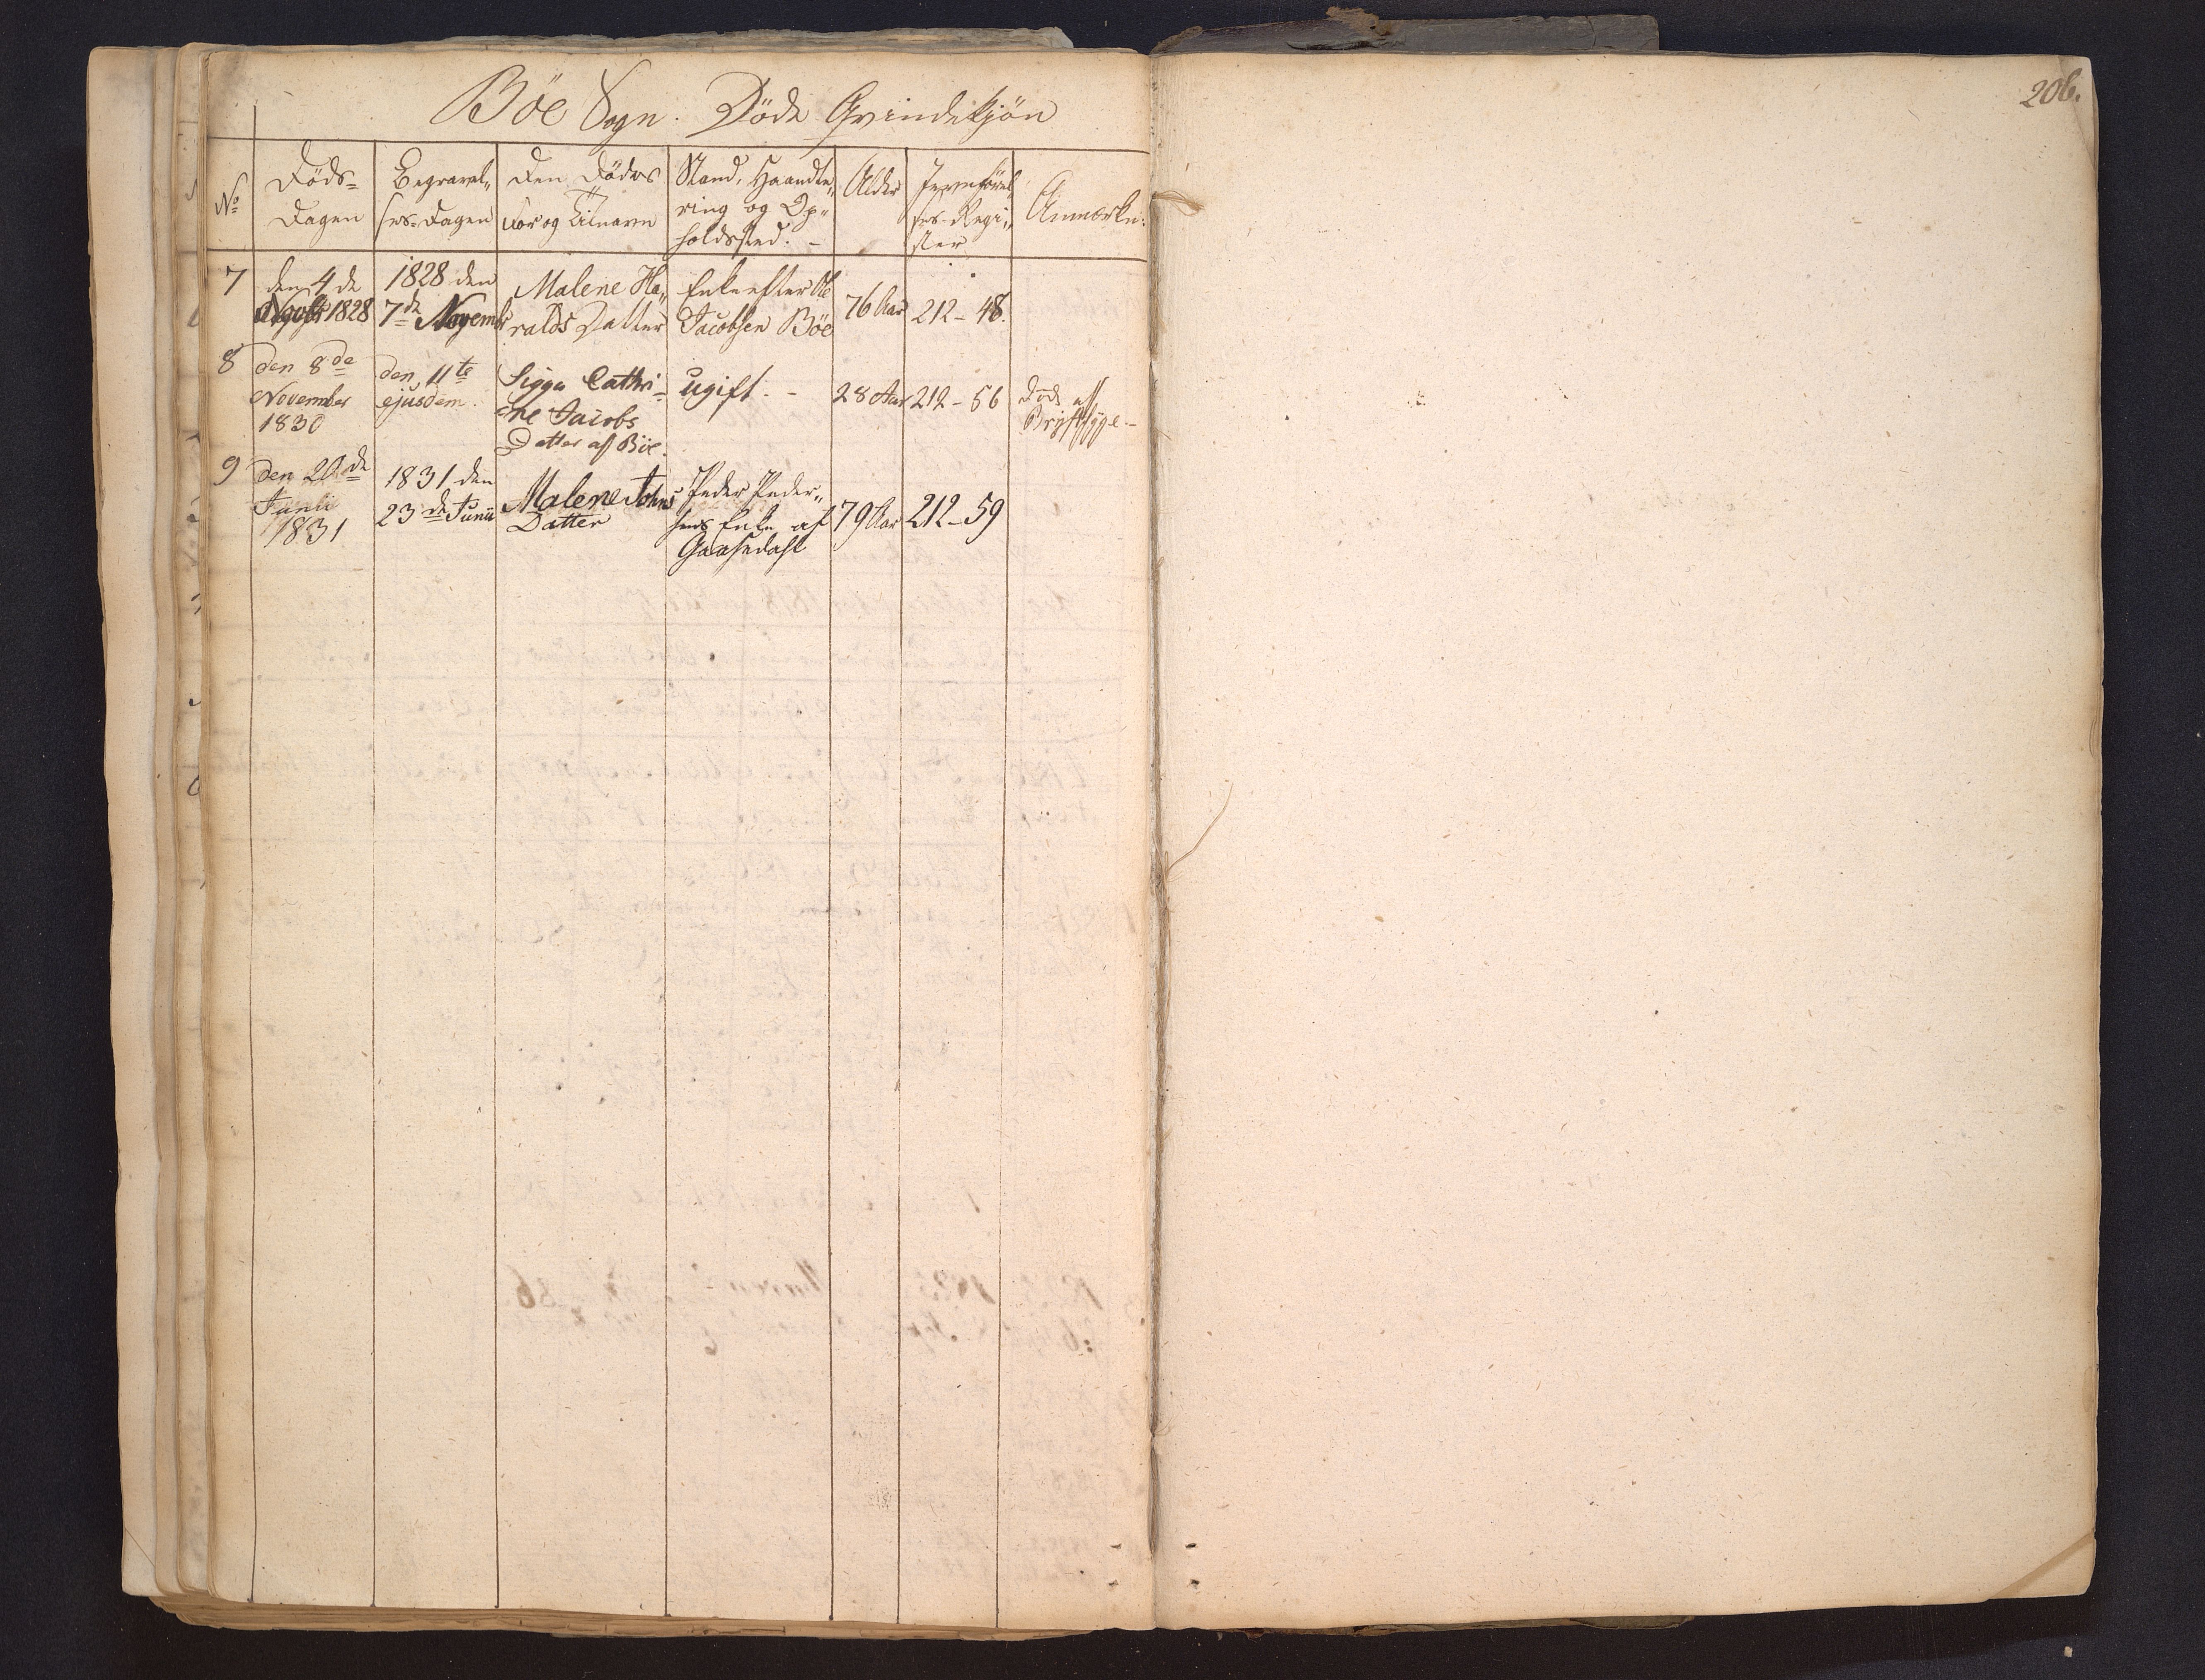 206.
Böe Sogn. Döde Qvindekjön
No
Döds-
Dagen
Begravel-
ses-Dagen
Den Dödes
For og Tilnavn
Stand, Haandte-
ring og Op-
holdssted. -
Alder
Jevnförel-
ses-Regi-
ster
Anmærkn:
7
den 4de
1828
1828 den
7de Novemb
Malene Ha-
ralds Datter
Enke efter Ole
Jacobsen Böe
76 Aar
212-48.
8
den 8de
November
1830
den 11te
ejusdem.
Sigga Cathri-
ne Jacobs
Datter af Böe.
ugift. -
28 Aar
212-56
Död af
Brystsyge. -
9
den 20de
Junii
1831
1831 den
23de Junii
Malene Johns
Datter
Peder Peder-
sens Enke af
Gaasedahl
79 Aar
212-59